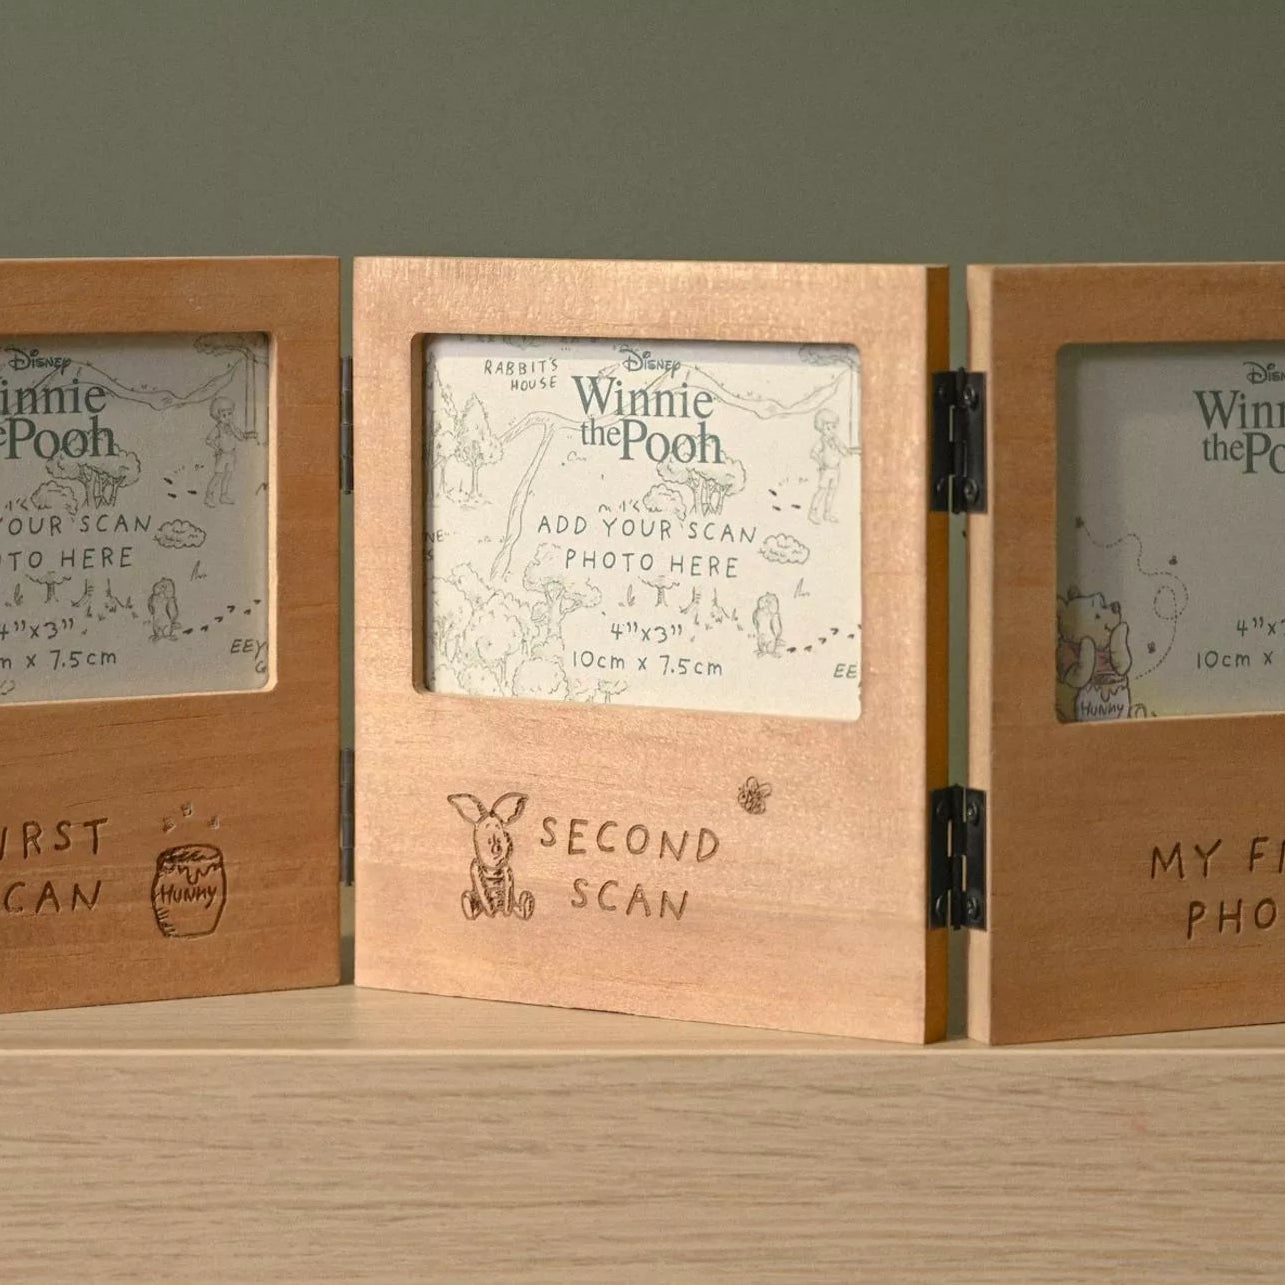 Disney
Winnie
the Pooh
YOUR SCAN
PHOTO HERE
4"x3"
x 7.5cm
FIRST
SCAN
HUNNY
RABBIT'S
HOUSE
Disney
Winnie
the Pooh
ADD YOUR SCAN
PHOTO HERE
4"x3"
10cm x 7.5cm
SECOND
SCAN
Disney
Winnie
the Pooh
10cm x
HUNNY
MY